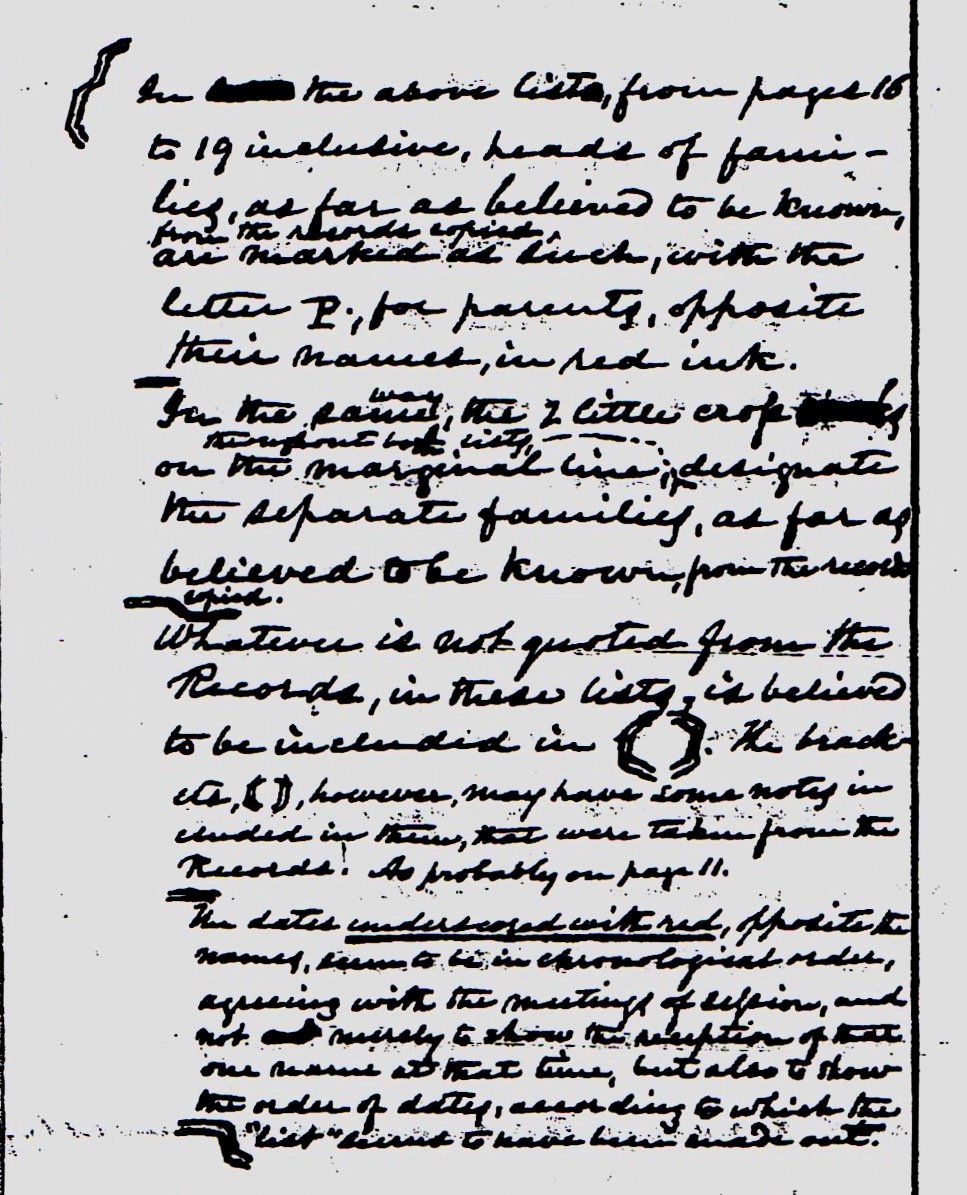 In the above lists, from pages 16
to 19 inclusive, heads of fami-
lies, as far as believed to be known,
from the records copied,
are marked as such, with the
letter P., for parents, opposite
their names, in red ink.
In the same way, the 2 little cross
throughout both lists,
on the marginal line, designate
the separate families, as far as
believed to be known, from the records
copied.
Whatever is not quoted from the
Records, in these lists, is believed
to be included in { }. The brack-
ets, { }, however, may have some notes in
cluded in them, that were taken from the
Records. As probably on page 11.
The dates underscored with red, opposite the
names, seem to be in chronological order,
agreeing with the meetings of session, and
not merely to show the reception of that
one name at that time, but also to show
the order of dates, according to which the
"list" seems to have been made out.